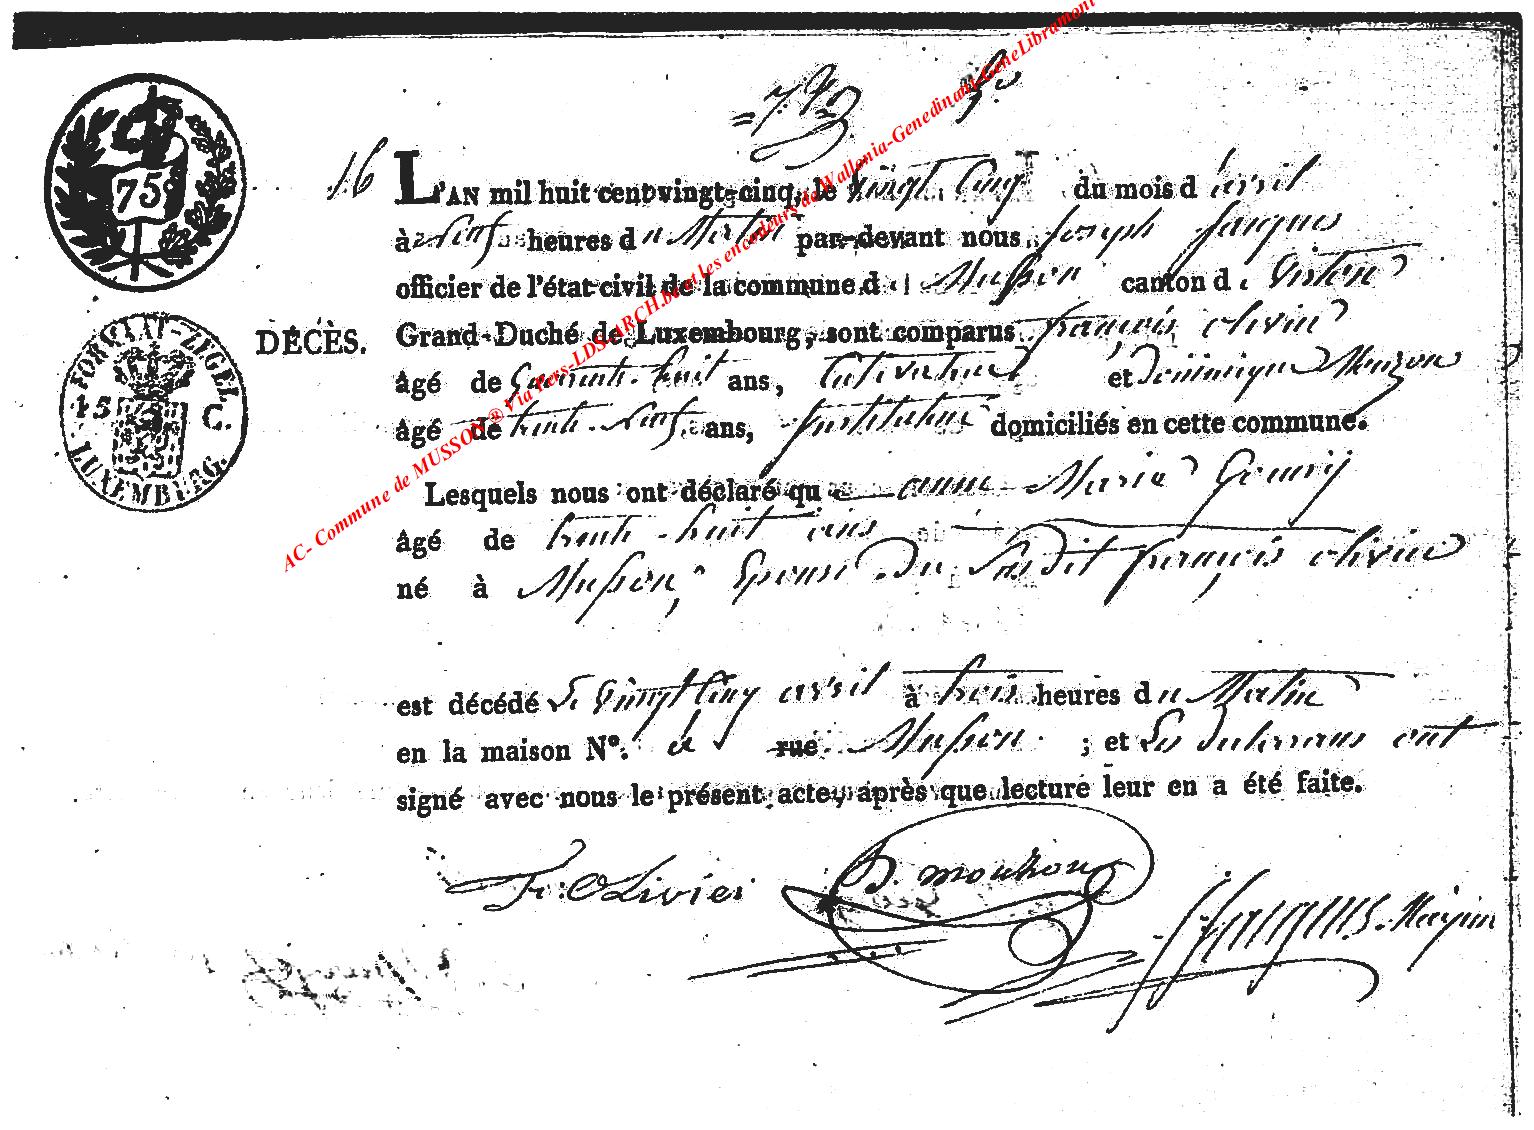 75
FORMAAT-ZEGEL
15 C.
LUXEMBURG.
16
L'AN mil huit cent vingt-cinq, le vingt cinq du mois d'avril
à neuf heures du Matin par-devant nous Joseph Jacques
officier de l'état civil de la commune de Musson canton de Virton
DÉCÈS.
Grand-Duché de Luxembourg, sont comparus françois olivier
âgé de quarante-huit ans, Cultivateur et Dominique Mouzon
âgé de trente-neuf ans, Instituteur domiciliés en cette commune.
Lesquels nous ont déclaré que anne Marie
âgé de trente-huit ans
né à Musson, Epouse du Susdit françois olivier
est décédé le vingt cinq avril à trois heures du Matin
en la maison N°. à rue Musson ; et les déclarans ont
signé avec nous le présent acte, après que lecture leur en a été faite.
Fr: Olivier D. mouzon Jacques. Mayeur
AC- Commune de MUSSON ® Via Pers-LDS-ARCH.be et les encodeurs de Wallonia-Genedinant-GeneLibramont